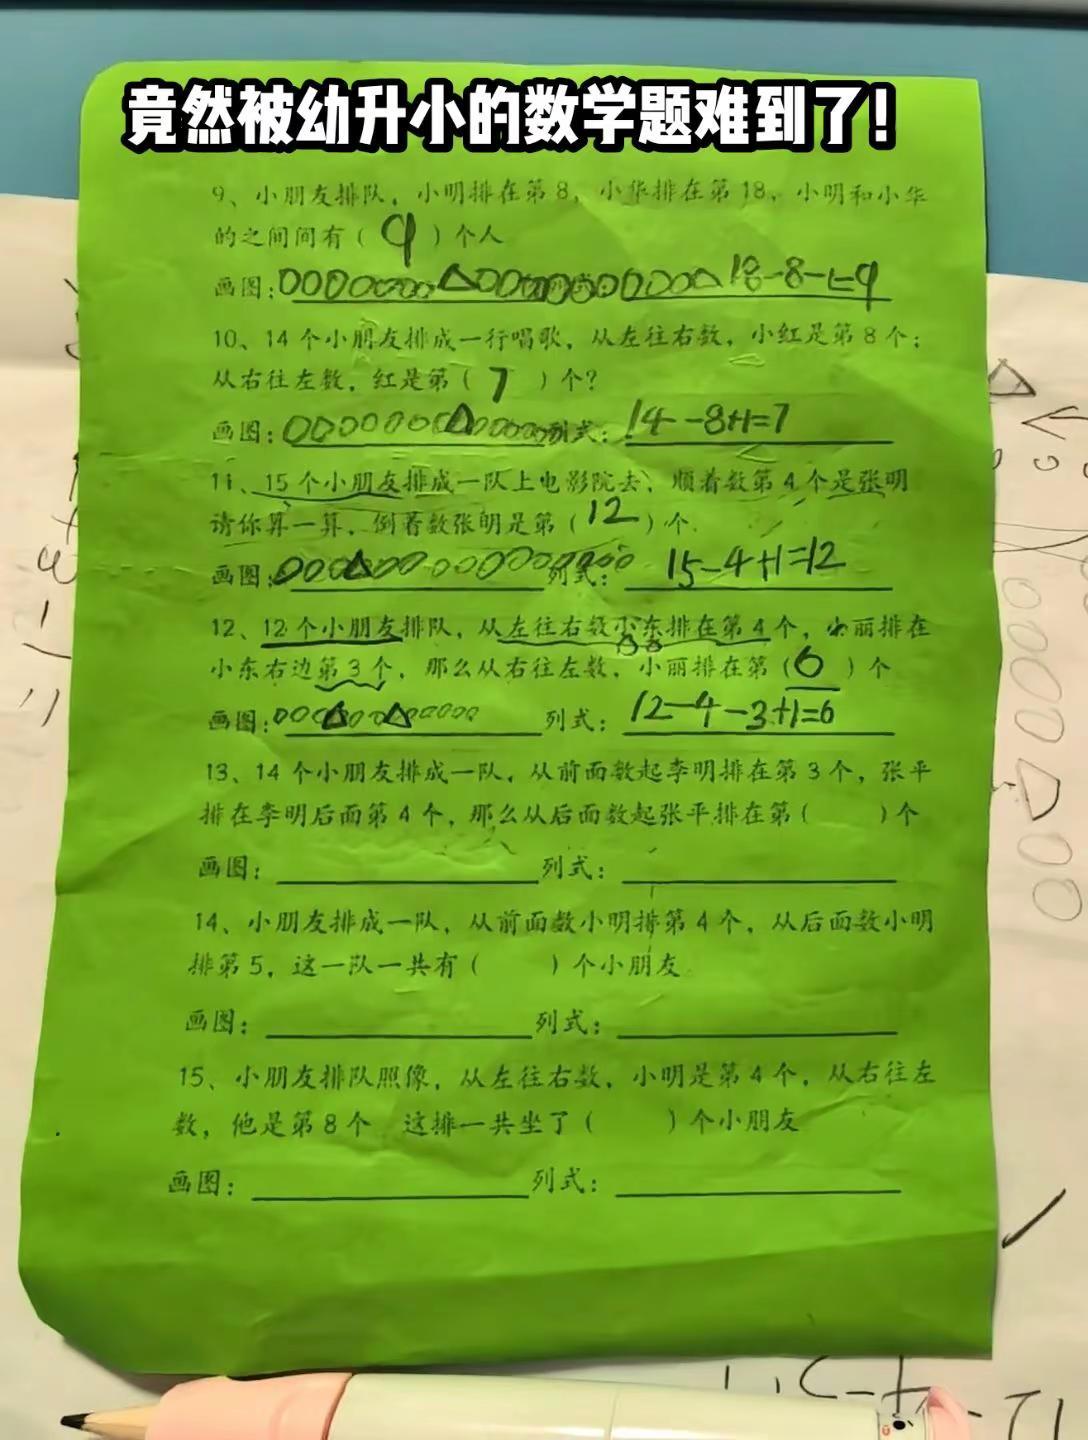 竟然被幼升小的数学题难到了!
9、小朋友排队，小明排在第8，小华排在第18，小明和小华
的之间间有（ 9 ）个人
画图: 18-8-1=9
10、14个小朋友排成一行唱歌，从左往右数，小红是第8个；
从右往左数，红是第（ 7 ）个？
画图: 列式: 14-8+1=7
11、15个小朋友排成一队上电影院去，顺着数第4个是张明
请你算一算，倒着数张明是第（ 12 ）个.
画图: 列式: 15-4+1=12
12、12个小朋友排队，从左往右数小东排在第4个，小丽排在
小东右边第3个，那么从右往左数，小丽排在第（ 6 ）个
画图: 列式: 12-4-3+1=6
13、14个小朋友排成一队，从前面数起李明排在第3个，张平
排在李明后面第4个，那么从后面数起张平排在第（ ）个
画图: 列式:
14、小朋友排成一队，从前面数小明排第4个，从后面数小明
排第5，这一队一共有（ ）个小朋友
画图: 列式:
15、小朋友排队照像，从左往右数，小明是第4个，从右往左
数，他是第8个 这排一共坐了（ ）个小朋友
画图: 列式: